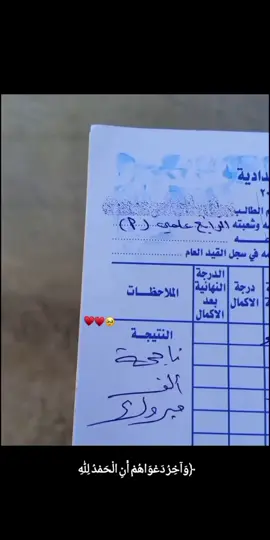 دادية
الطالب
وشعبته الرابع علمي (م)
في سجل القيد العام
الملاحظات
الدرجة النهائية بعد الاكمال
درجة الاكمال
النتيجة
ناجحة
ألف
مبروك
﴿وَآخِرُ دَعْوَاهُمْ أَنِ الْحَمْدُ لِلَّهِ